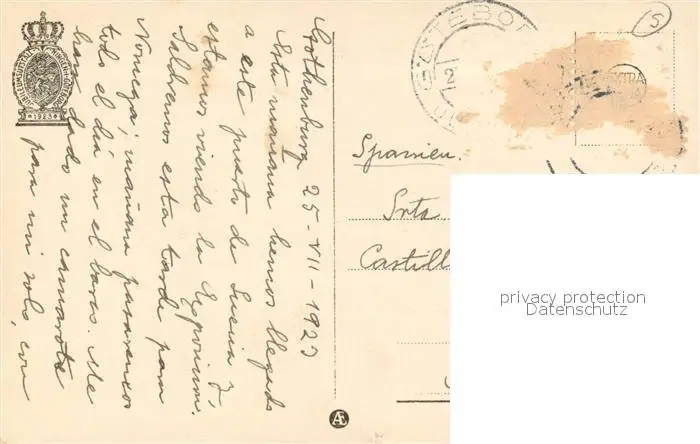 Gothemburg 25-VII-1923
Esta mañana hemos llegado
a este puerto de Suecia y
estamos viendo la Exposición.
Saldremos esta tarde para
Noruega; mañana pasaremos
todo el día en el barco. Me
han dado un camarote
para mi solo, con
GÖTEBOR
Spanien.
Srta.
Castill
1923
Æ
5
privacy protection
Datenschutz